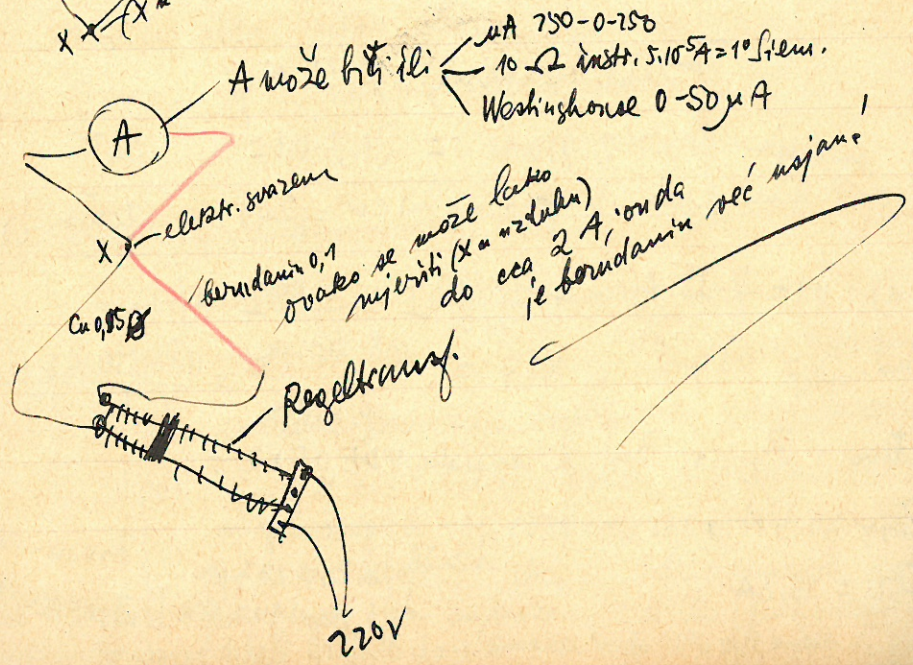 X
A može biti ili
µA 250-0-250
10 Ω instr. 5.10⁻⁵A=1° Siem.
Westinghouse 0-50 µA
A
X
elektr. svareno
berndanin 0,1
ovako se može lako
mjeriti (X u uzduhu)
do cca 2 A, onda
je berndanin već usijan!
Cu 0,85 Ø
Regeltransf.
220V